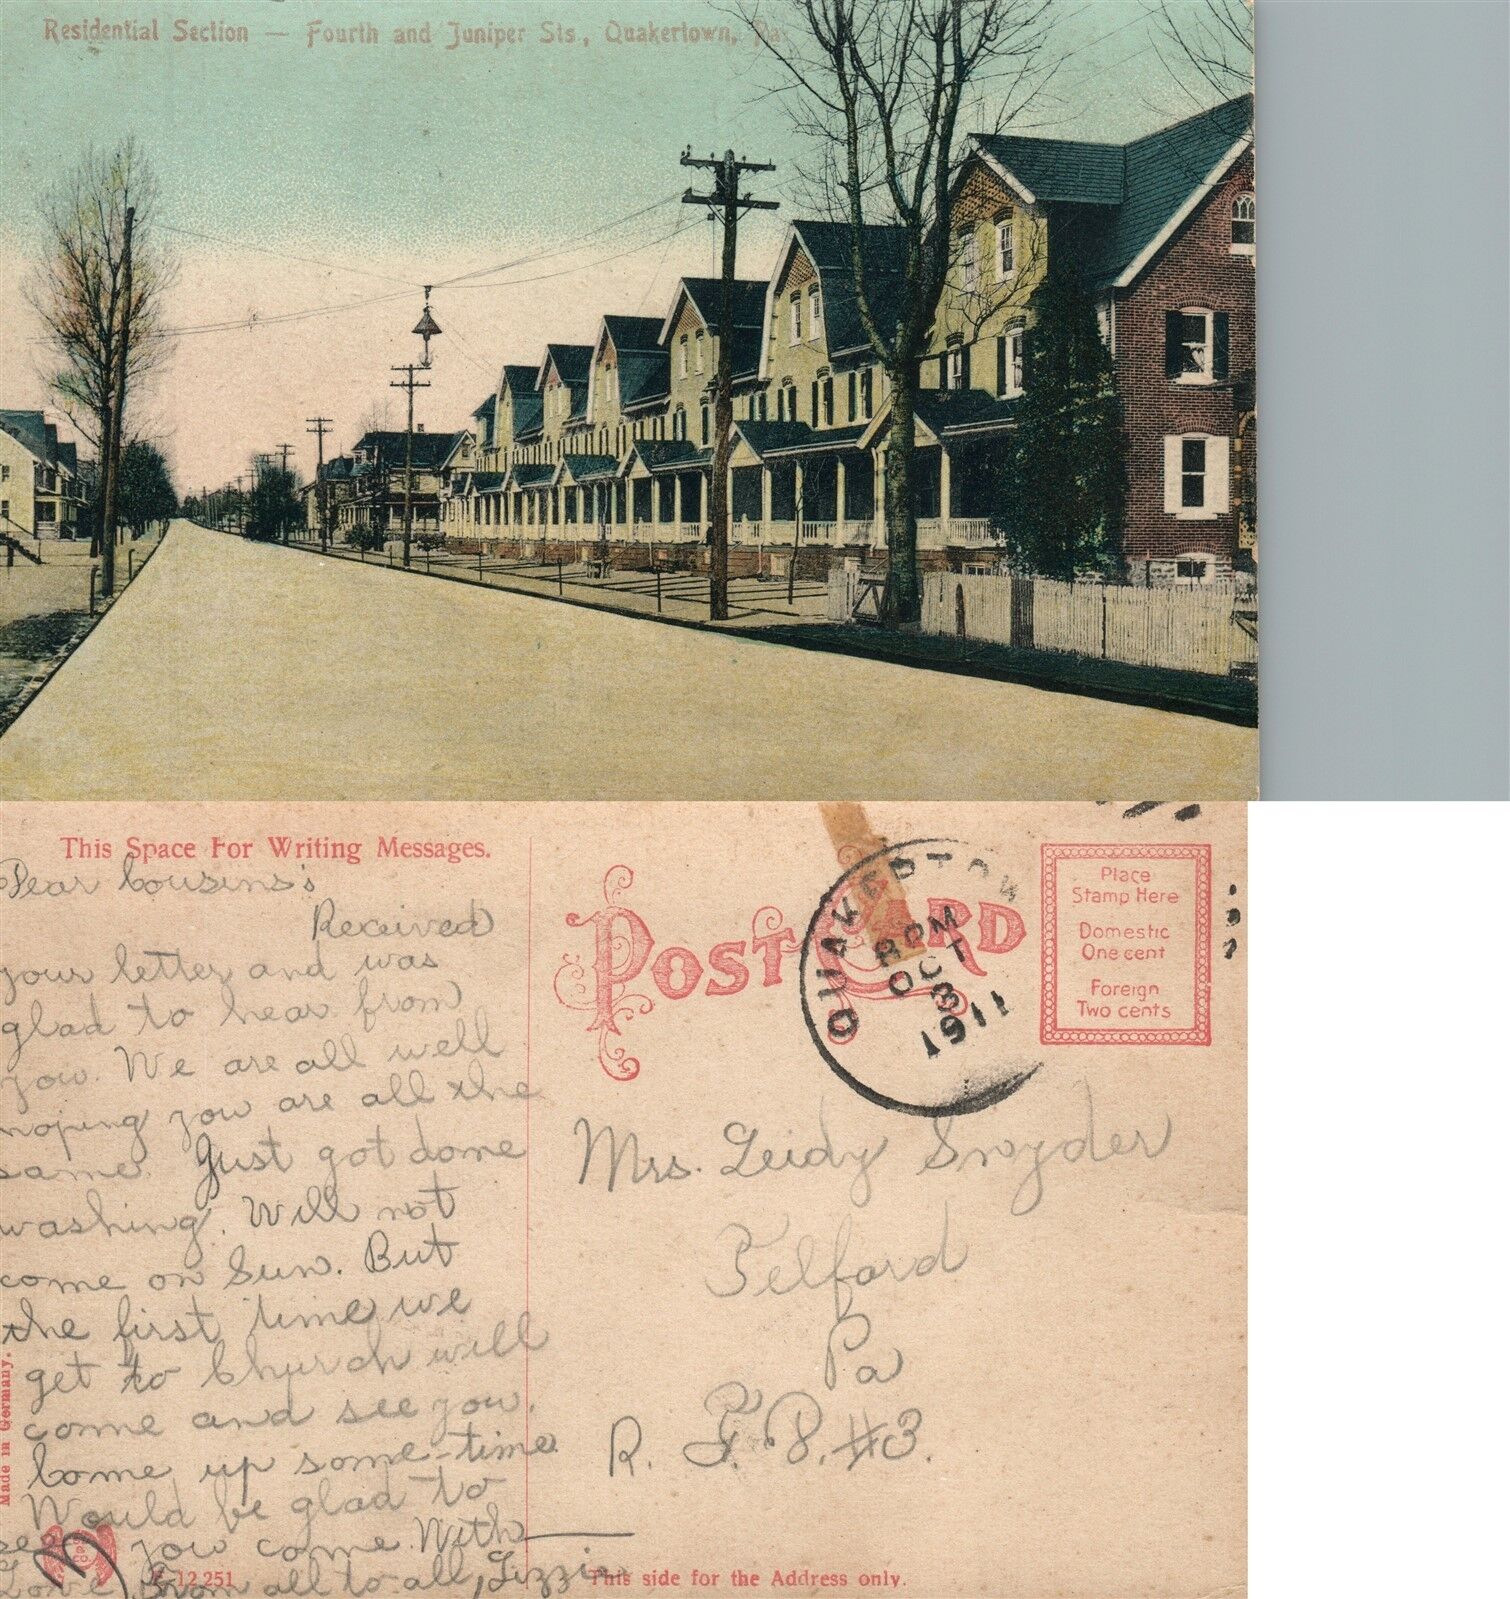 Residential Section — Fourth and Juniper Sts., Quakertown, Pa.
This Space For Writing Messages.
Dear Cousins's
Received
your letter and was
glad to hear from
you. We are all well
hoping you are all the
same. Just got done
washing. Will not
come on Sun. But
the first time we
get to Church will
come and see you.
Come up some-time
Would be glad to
see you come. With
Love from all to all, Lizzie
Made in Germany.
12251
POST CARD
QUAKERTOW
8 PM
OCT
3
1911
Place
Stamp Here
Domestic
One cent
Foreign
Two cents
Mrs. Leidy Snyder
Telford
Pa
R. F. D. #3.
This side for the Address only.